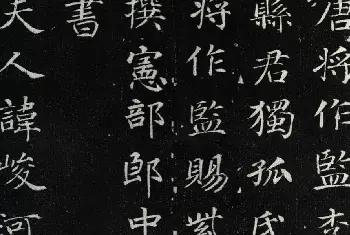 唐將作監
縣君獨孤氏
將作監賜紫
撰憲部郎中
書
夫人諱峻河